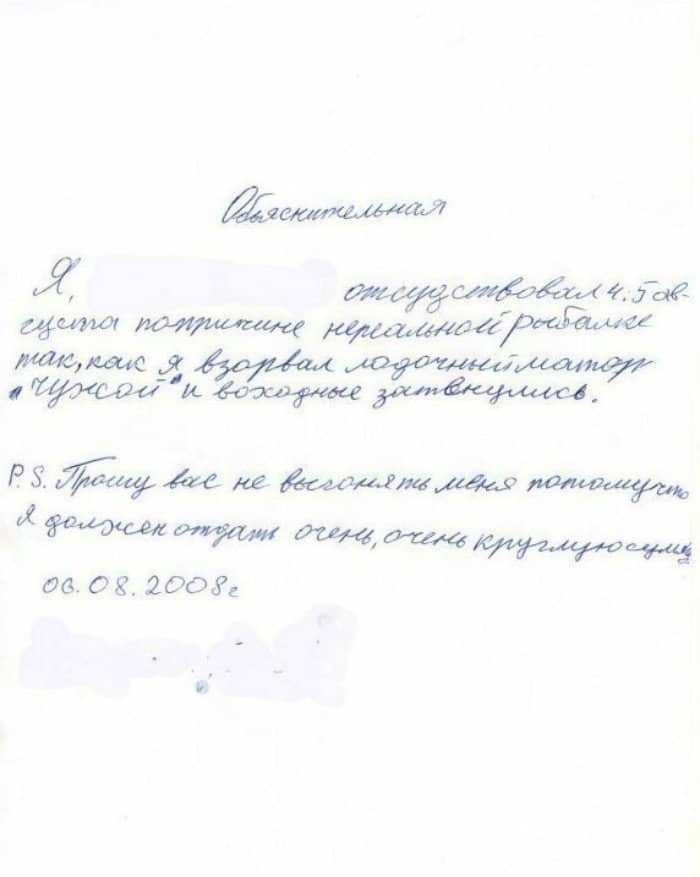 Объяснительная
Я, отсудствовал 4.5 ав-
густа попричине нереальной рыбалке
так, как я взорвал лодочный матор
"Чужой" и воходные затенулись.
P.S. Прошу вас не выгонять меня потомучто
я должен отдать очень, очень круглую сумму
06.08.2008г